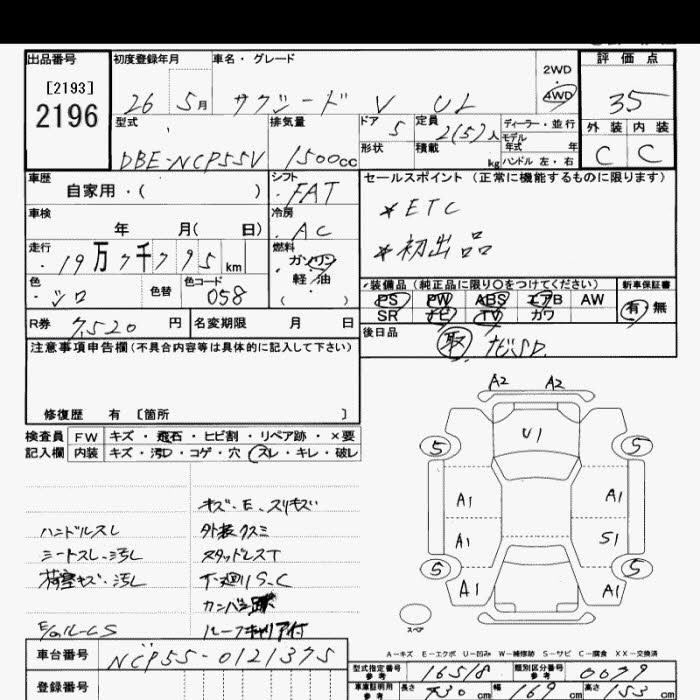 出品番号 初度登録年月 車名・グレード 評価点
[2193]
2196
26 5月 サクシード V UL
2WD
・
4WD
35
型式 排気量 ドア 5 定員 2(5)人 ディーラー・並行 外装 内装
モデル
年式 年
DBE-NCP55V 1500cc 形状 積載 kg ハンドル 左・右 C C
車歴 シフト セールスポイント(正常に機能するものに限ります)
自家用・( ) FAT
*ETC
車検 冷房
年 月( 日) AC
*初出品
走行 燃料
19万7千795km ガソリン
軽・油
( )
色 色替 色コード 装備品(純正品に限り○をつけてください) 新車保証書
シロ 058 PS PW ABS エアB AW 有 無
SR ナビ TV カワ
R券 7,520円 名変期限 月 日 後日品
取 ナビSD.
注意事項申告欄(不具合内容等は具体的に記入して下さい)
修復歴 有 [箇所 ]
検査員 FW キズ・飛石・ヒビ割・リペア跡・×要
記入欄 内装 キズ・汚レ・コゲ・穴・スレ・キレ・破レ
A2 A2
U1
5 5
A1 A1
A1 S1
5 5
A1 A1
スペア
キズ・E・スリキズ
ハンドルスレ 外装クスミ
シートスレ・汚レ スタッドレスT
荷室キズ・汚レ 下廻りS.C
カンバン跡
ルーフキャリア付
A-キズ E-エクボ U-凹み W-補修跡 S-サビ C-腐食 XX-交換済
車台番号 NCP55-0121375
型式指定番号 参考 16518 類別区分番号 参考 0079
登録番号
車庫証明用 参考 長さ 430cm 幅 169cm 高さ 153cm